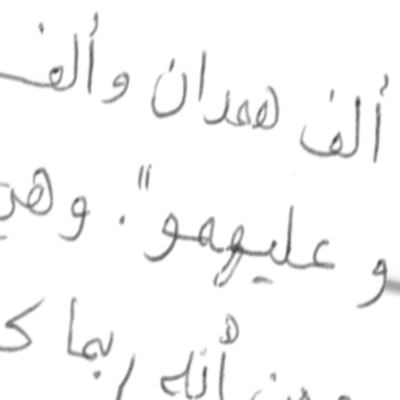 ألف همدان وألف
و عليهمو". وهي
أنه ربما